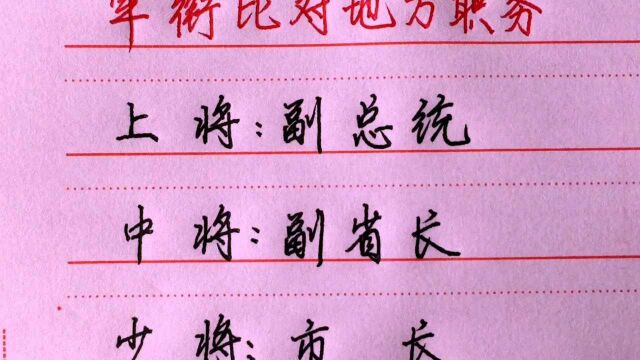 军衔比对地方职务
上将:副总统
中将:副省长
少将:市长